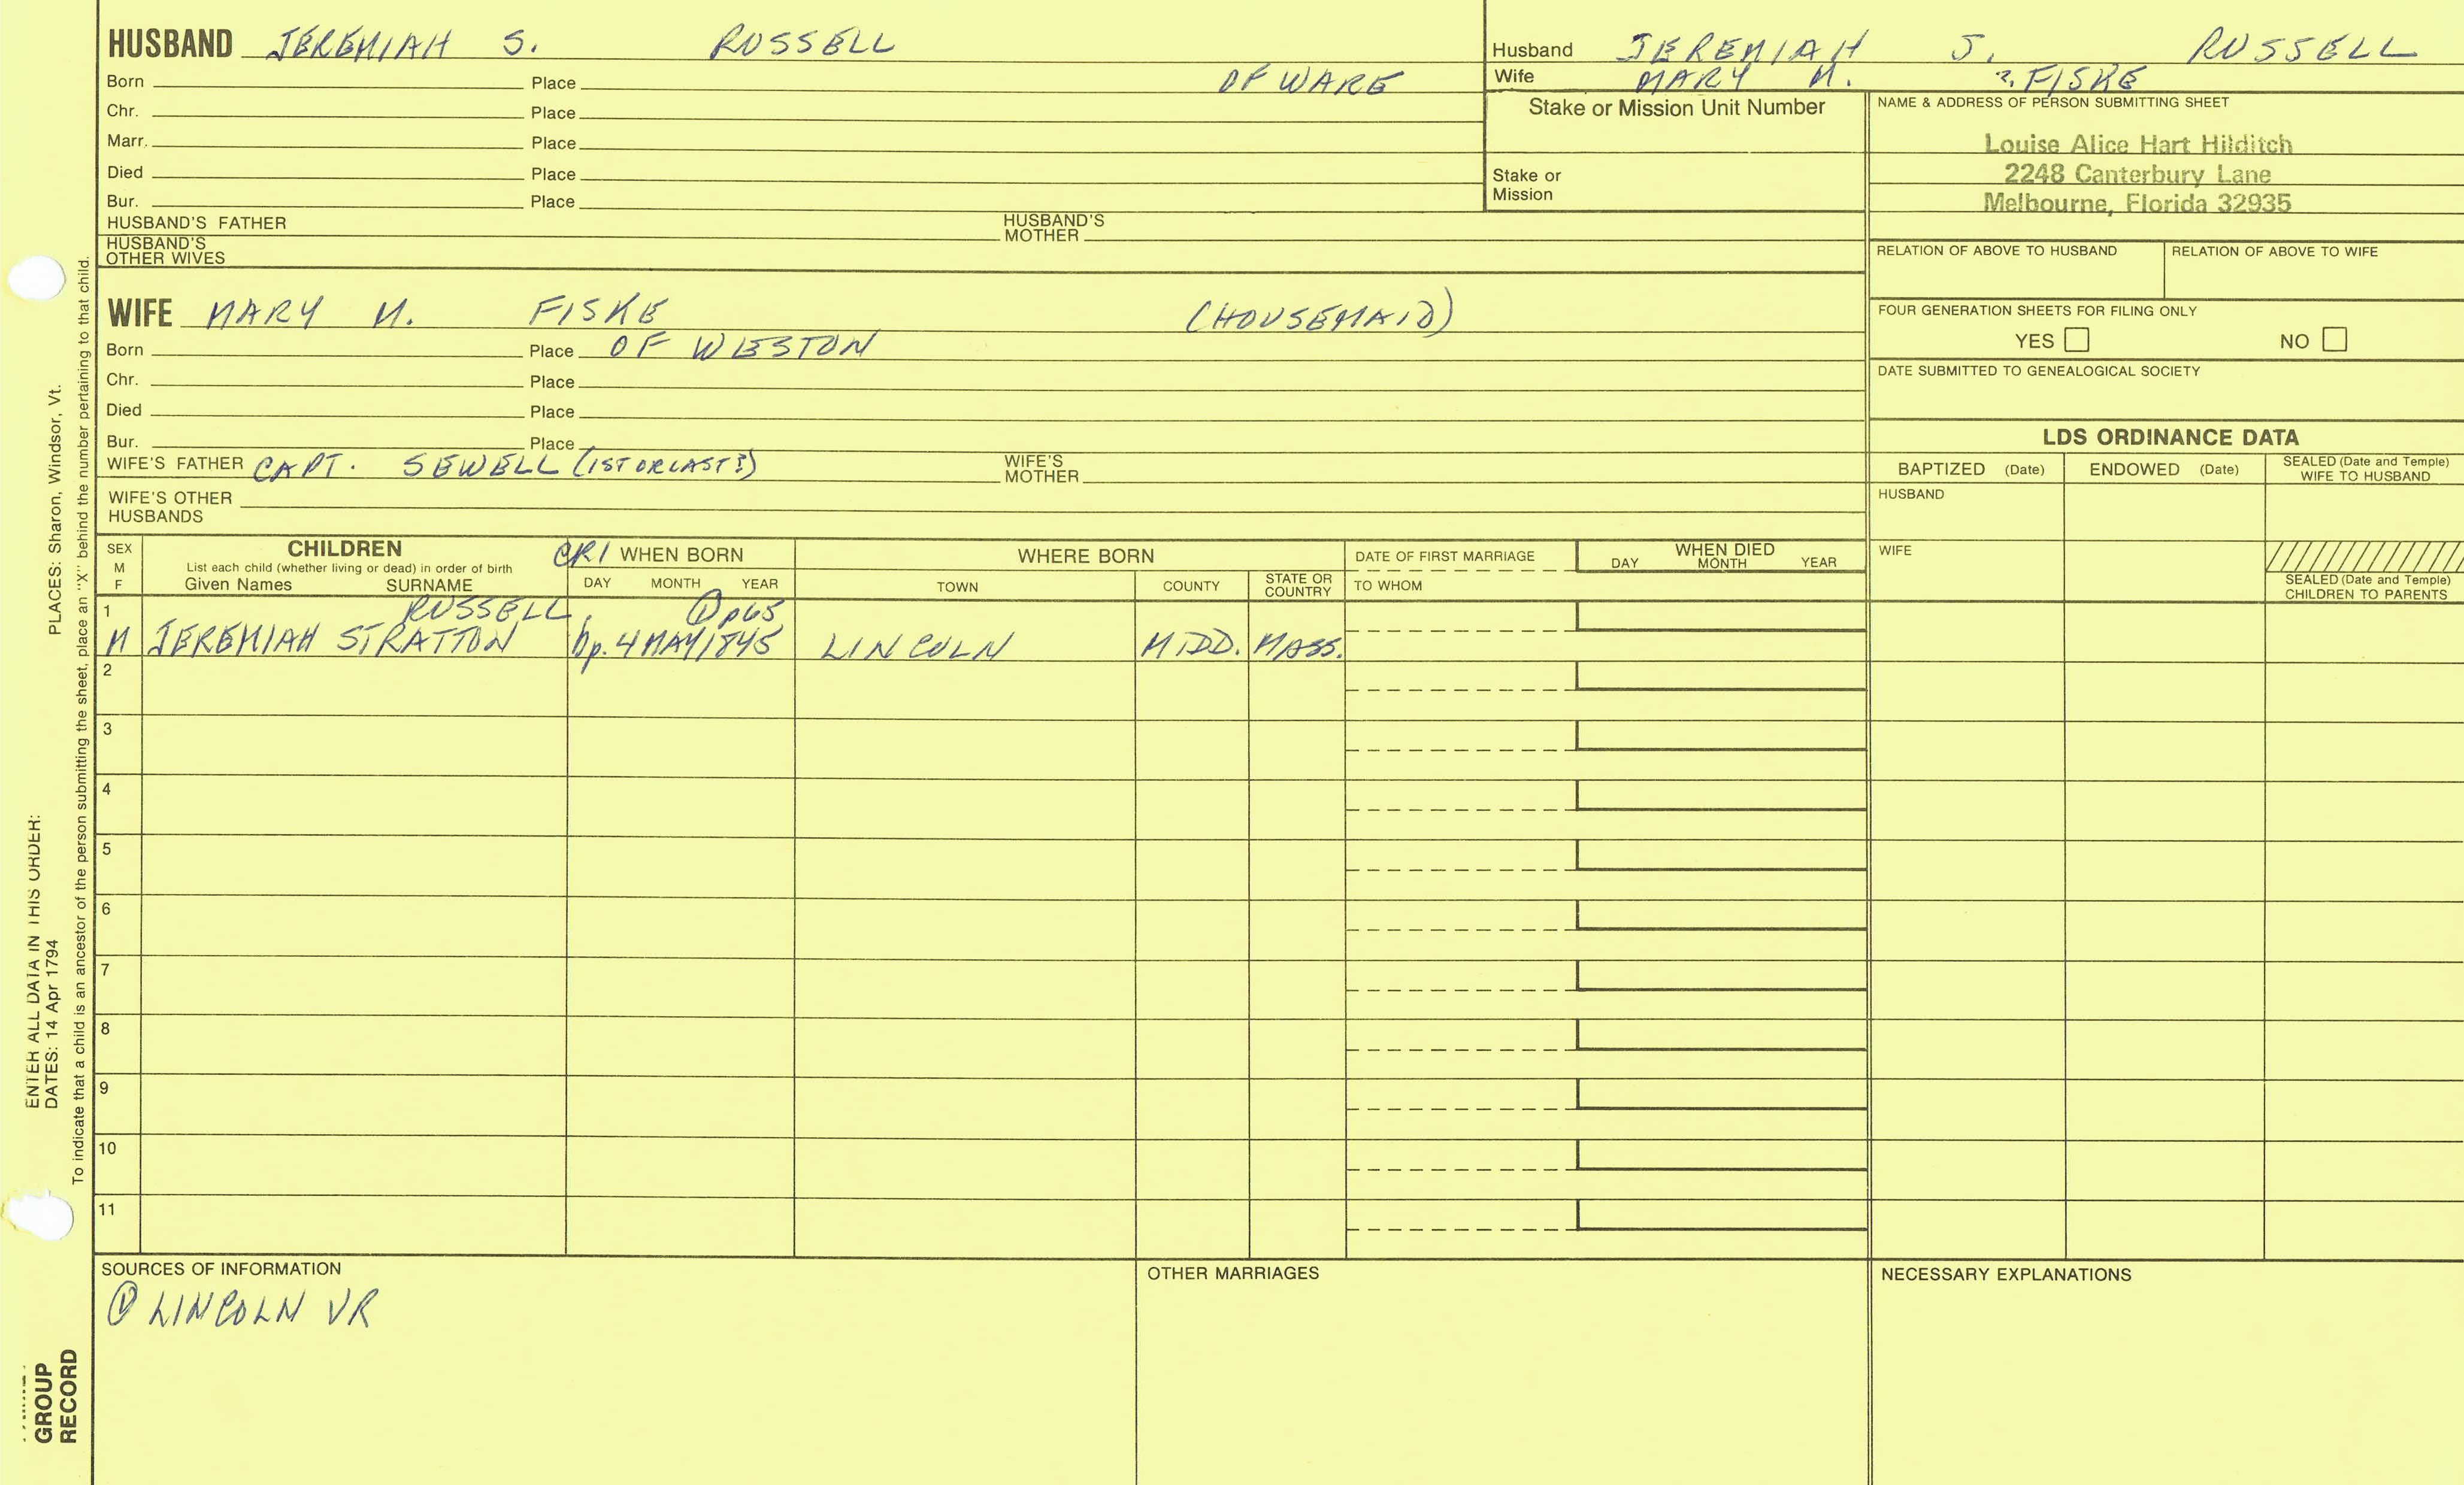 HUSBAND JEREMIAH S. RUSSELL
Born Place OF WARE
Chr. Place
Marr. Place
Died Place
Bur. Place
HUSBAND'S FATHER HUSBAND'S MOTHER
HUSBAND'S OTHER WIVES
Husband JEREMIAH S. RUSSELL
Wife MARY M. ?. FISKE
Stake or Mission Unit Number
Stake or Mission
NAME & ADDRESS OF PERSON SUBMITTING SHEET
Louise Alice Hart Hilditch
2248 Canterbury Lane
Melbourne, Florida 32935
RELATION OF ABOVE TO HUSBAND RELATION OF ABOVE TO WIFE
FOUR GENERATION SHEETS FOR FILING ONLY
YES NO
DATE SUBMITTED TO GENEALOGICAL SOCIETY
WIFE MARY M. FISKE (HOUSEMAID)
Born Place OF WESTON
Chr. Place
Died Place
Bur. Place
WIFE'S FATHER CAPT. SEWELL (1ST OR LAST?) WIFE'S MOTHER
WIFE'S OTHER HUSBANDS
LDS ORDINANCE DATA
BAPTIZED (Date) ENDOWED (Date) SEALED (Date and Temple) WIFE TO HUSBAND
HUSBAND
WIFE
SEALED (Date and Temple) CHILDREN TO PARENTS
SEX M F
CHILDREN
List each child (whether living or dead) in order of birth
Given Names SURNAME
CR1 WHEN BORN
DAY MONTH YEAR
WHERE BORN
TOWN COUNTY STATE OR COUNTRY
DATE OF FIRST MARRIAGE
TO WHOM
WHEN DIED
DAY MONTH YEAR
1 RUSSELL, ① p65
M JEREMIAH STRATTON bp. 4 MAY 1845 LINCOLN MIDD. MASS.
2
3
4
5
6
7
8
9
10
11
SOURCES OF INFORMATION
① LINCOLN VR
OTHER MARRIAGES
NECESSARY EXPLANATIONS
ENTER ALL DATA IN THIS ORDER:
DATES: 14 Apr 1794 PLACES: Sharon, Windsor, Vt.
To indicate that a child is an ancestor of the person submitting the sheet, place an "X" behind the number pertaining to that child.
GROUP
RECORD